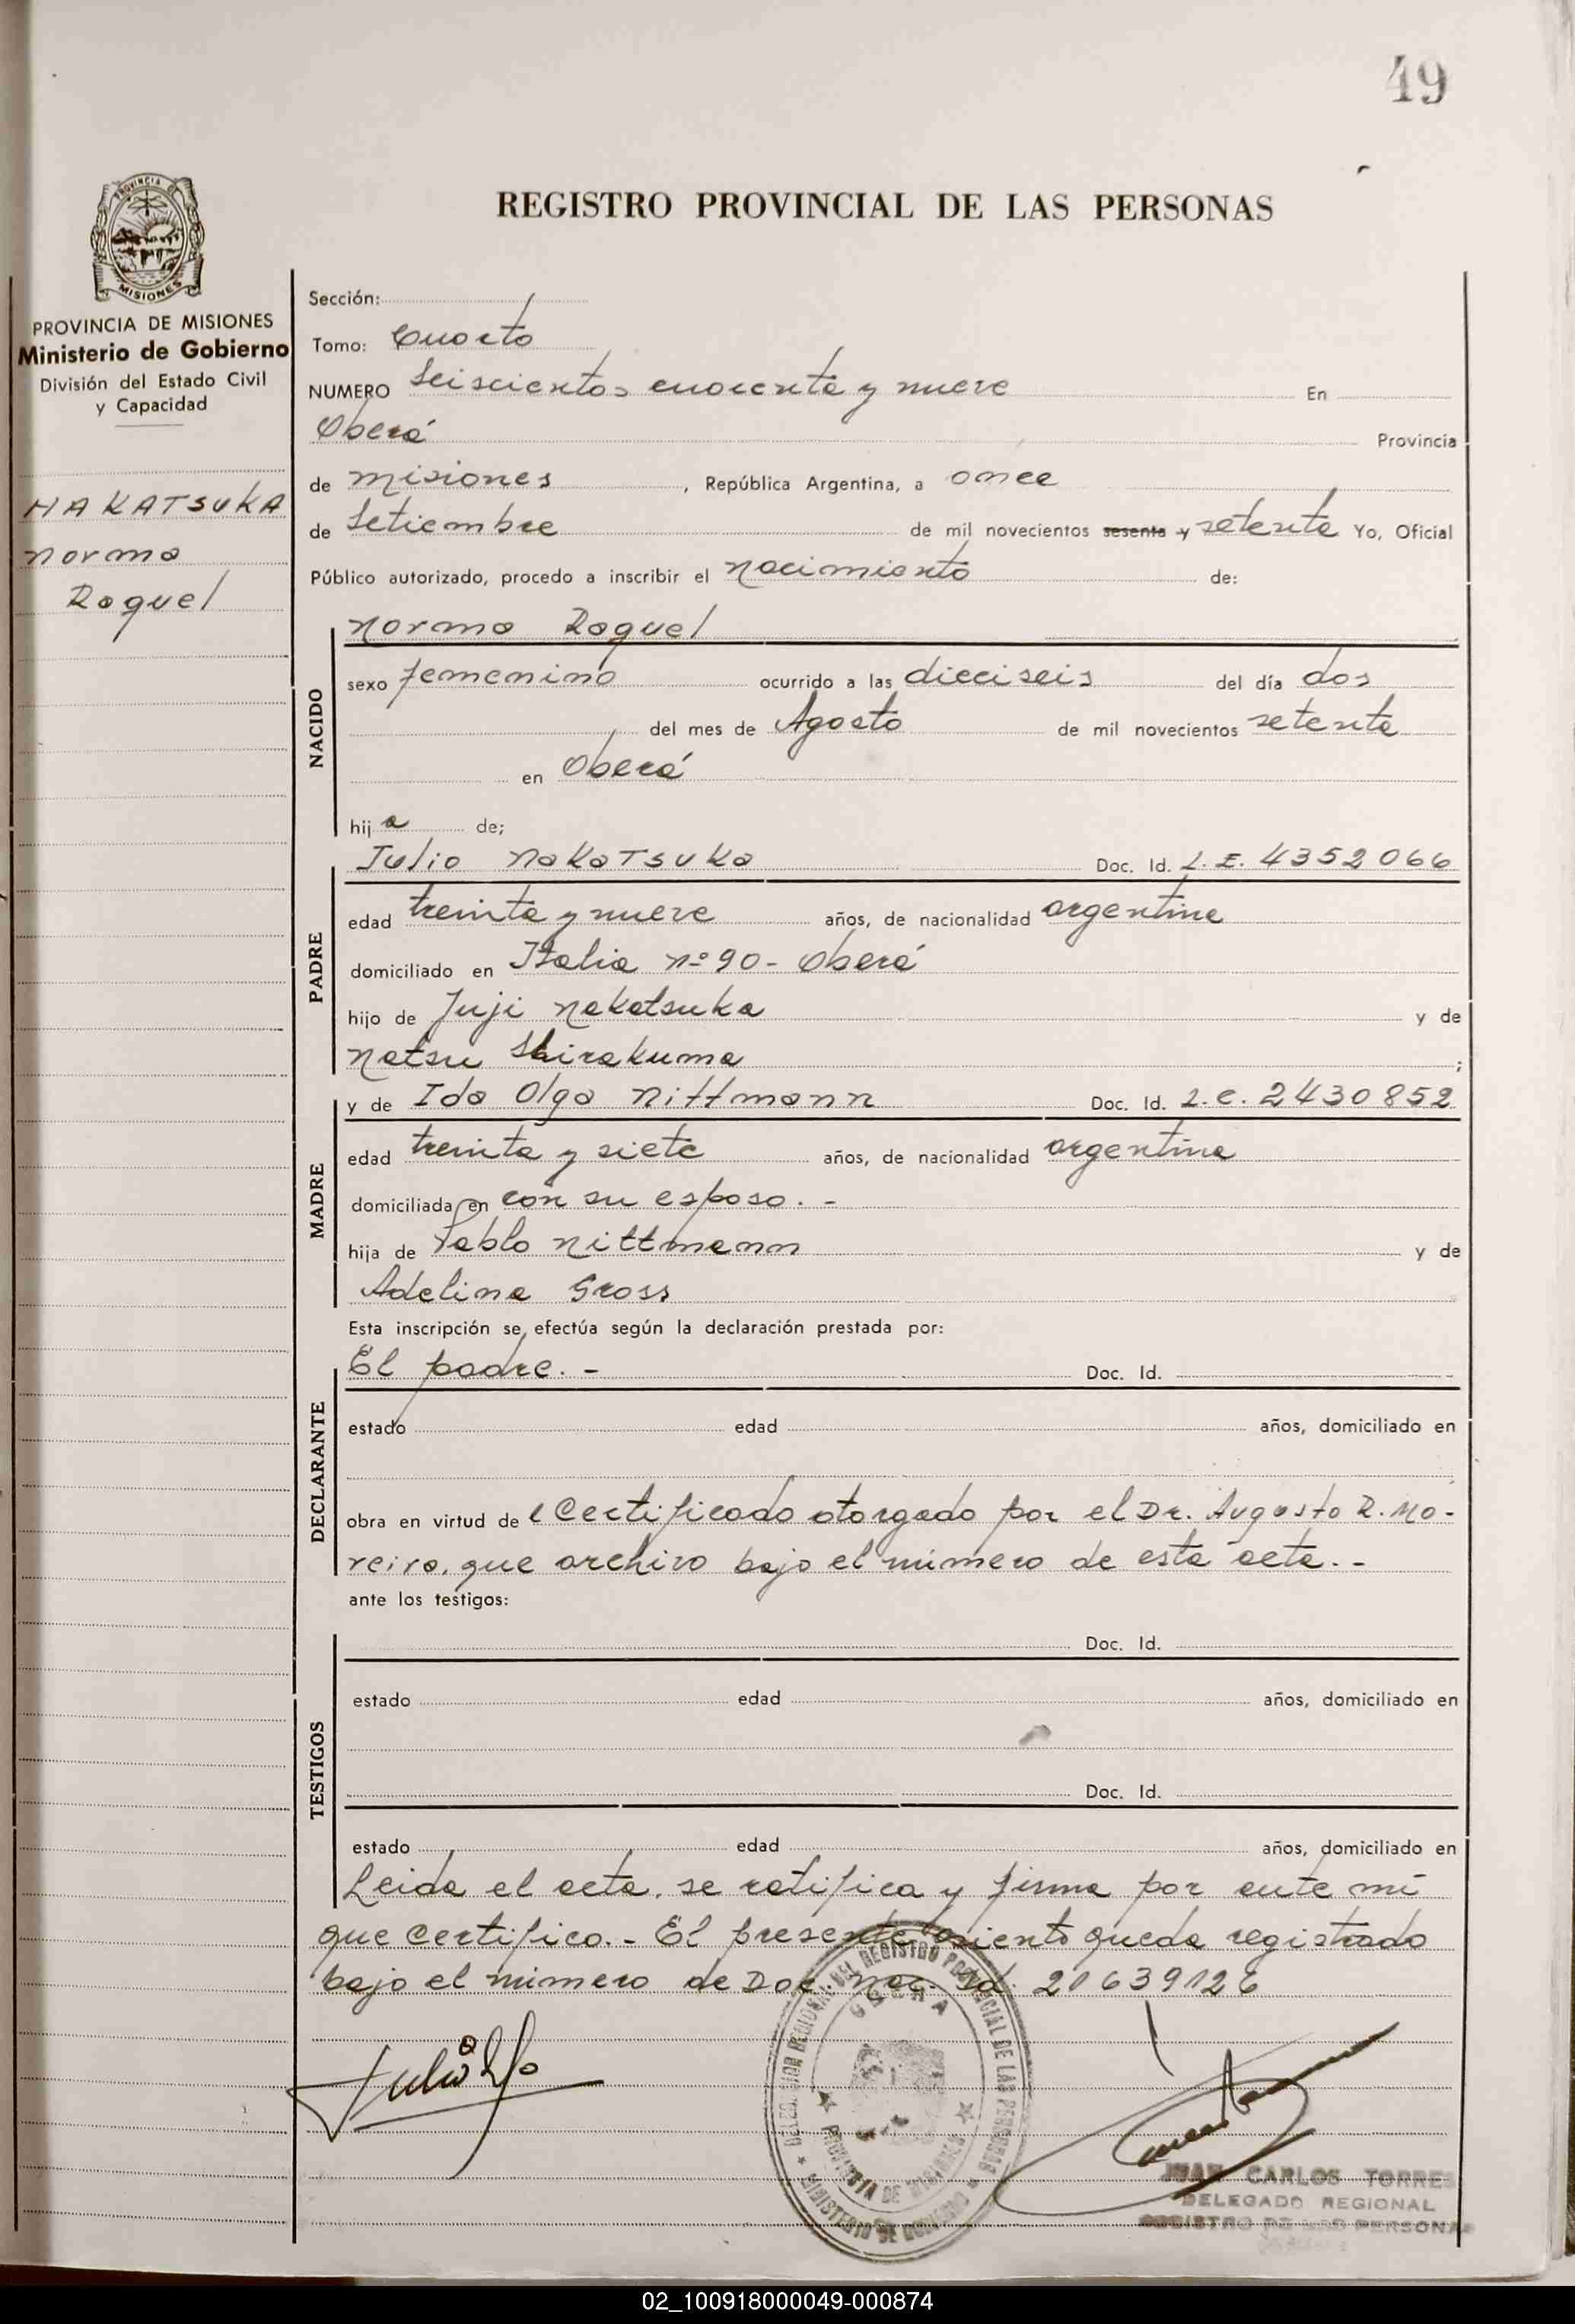 49
REGISTRO PROVINCIAL DE LAS PERSONAS
PROVINCIA DE
MISIONES
PROVINCIA DE MISIONES
Ministerio de Gobierno
División del Estado Civil
y Capacidad
NAKATSUKA
Norma
Raquel
Sección:
Tomo: Cuarto
NUMERO Seiscientos cuarenta y nueve En
Oberá Provincia
de Misiones, República Argentina, a once
de Setiembre de mil novecientos sesenta y setenta Yo, Oficial
Público autorizado, procedo a inscribir el nacimiento de:
Norma Raquel
NACIDO
sexo femenino ocurrido a las dieciseis del día dos
del mes de Agosto de mil novecientos setenta
en Oberá
hija de;
Julio Nakatsuka Doc. Id. L.E. 4352066
PADRE
edad treinta y nueve años, de nacionalidad argentina
domiciliado en Italia nº 90 - Oberá
hijo de Juji Nakatsuka y de
Natsu Shirakuma;
y de Ida Olga Nittmann Doc. Id. L.C. 2430852
MADRE
edad treinta y siete años, de nacionalidad argentina
domiciliada en con su esposo. -
hija de Pablo Nittmann y de
Adelina Gross
Esta inscripción se efectúa según la declaración prestada por:
El padre. - Doc. Id.
DECLARANTE
estado edad años, domiciliado en
obra en virtud del Certificado otorgado por el Dr. Augusto R. Mo-
reira, que archivo bajo el número de esta acta. -
ante los testigos:
Doc. Id.
TESTIGOS
estado edad años, domiciliado en
Doc. Id.
estado edad años, domiciliado en
Leida el acta, se ratifica y firma por ante mi
que certifico. - El presente asiento queda registrado
bajo el número de Doc. Nac. Id. 21639126
DELEGACION REGIONAL DEL REGISTRO PROVINCIAL DE LAS PERSONAS
OBERA
PROVINCIA DE MISIONES
MINISTERIO DE GOBIERNO
JUAN CARLOS TORRES
DELEGADO REGIONAL
REGISTRO DE LAS PERSONAS
02_100918000049-000874